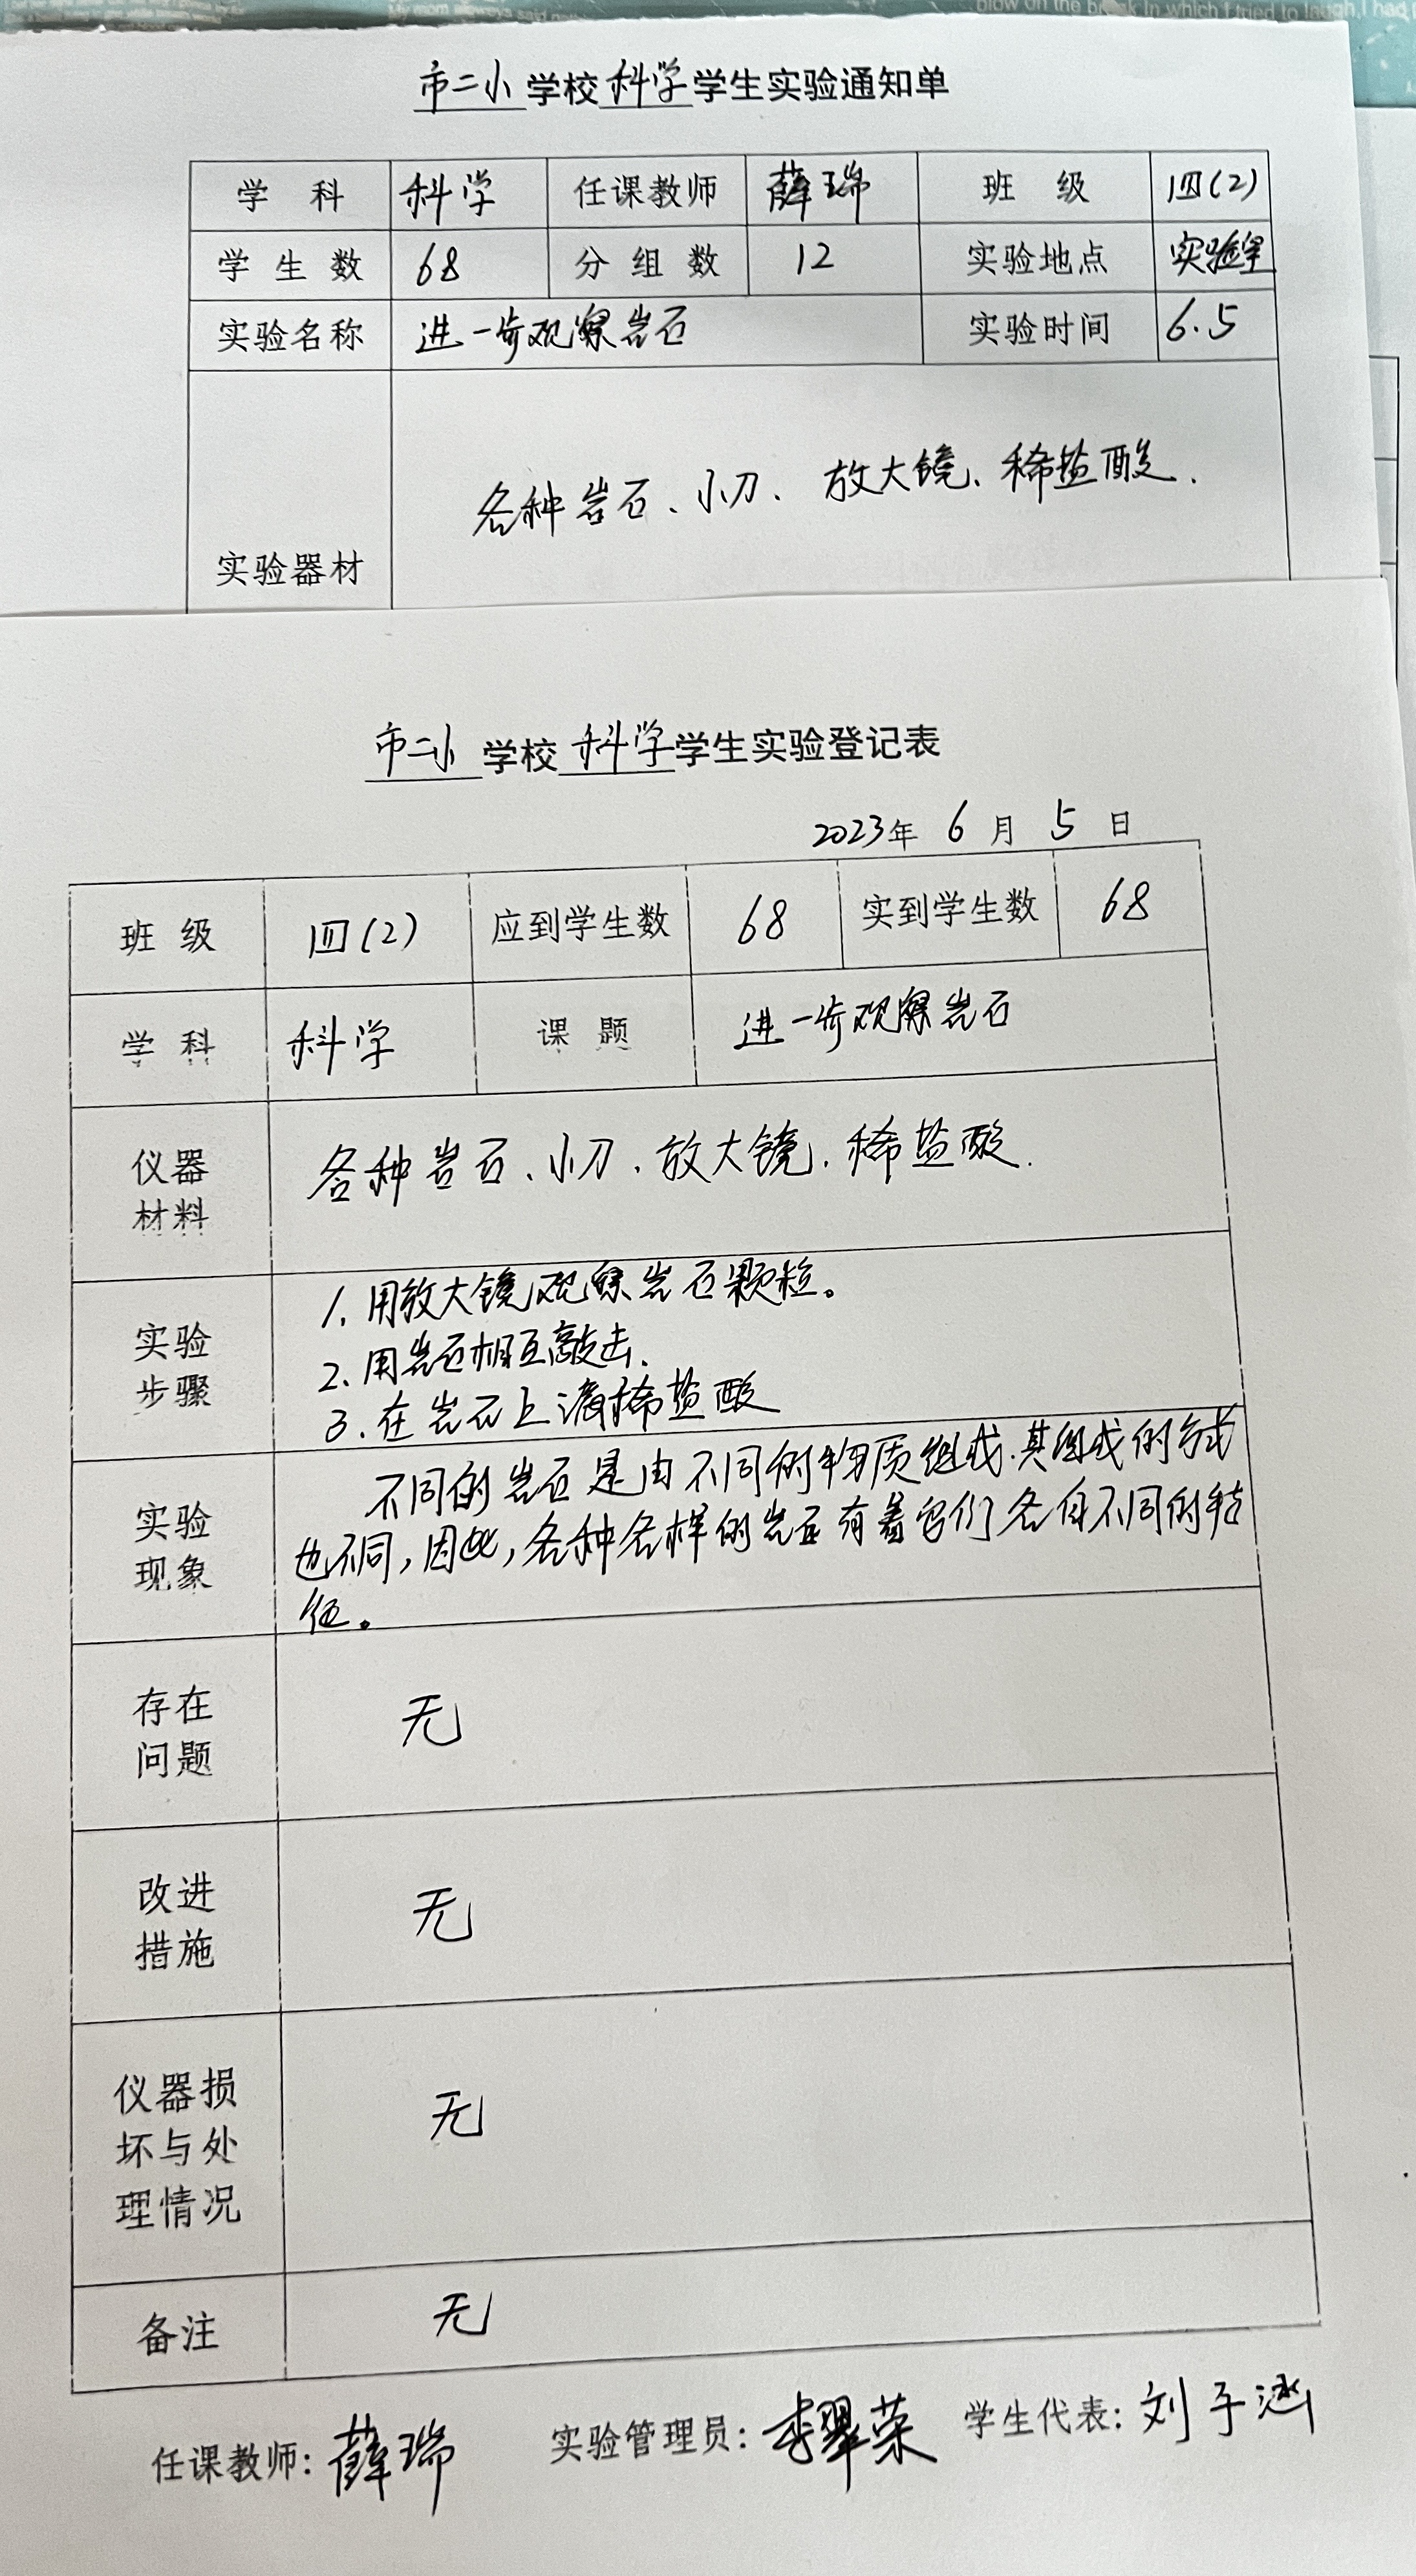 My mom always said
blow on the break In which I tried to laugh, I had
市二小学校科学学生实验通知单
学 科 科学 任课教师 薛瑞 班 级 四(2)
学 生 数 68 分 组 数 12 实验地点 实验室
实验名称 进一步观察岩石 实验时间 6.5
各种岩石、小刀、放大镜、稀盐酸.
实验器材
市二小学校科学学生实验登记表
2023年 6 月 5 日
班 级 四(2) 应到学生数 68 实到学生数 68
学 科 科学 课 题 进一步观察岩石
仪器
材料
各种岩石、小刀、放大镜、稀盐酸.
实验
步骤
1、用放大镜观察岩石颗粒。
2、用岩石相互敲击.
3、在岩石上滴稀盐酸
实验
现象
不同的岩石是由不同的物质组成.其组成的方式
也不同,因此,各种各样的岩石有着它们各自不同的特
征。
存在
问题
无
改进
措施
无
仪器损
坏与处
理情况
无
备注 无
任课教师:薛瑞 实验管理员:李翠荣 学生代表:刘子涵